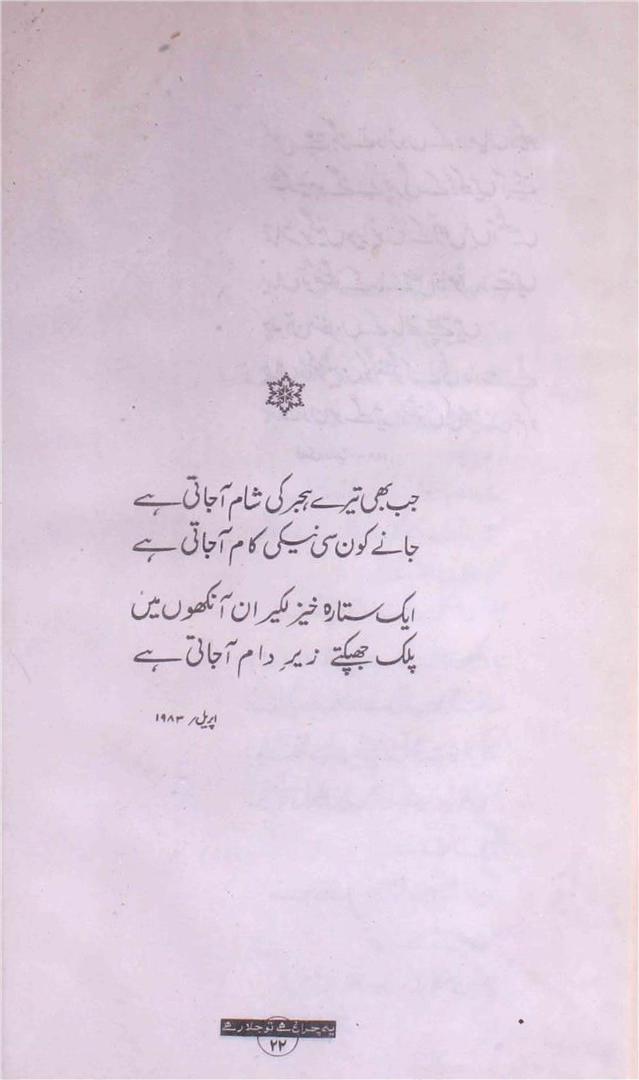 جب بھی تیرے ہجر کی شام آجاتی ہے
جانے کون سی نیکی کام آجاتی ہے
ایک ستارہ خیز لکیر ان آنکھوں میں
پلک جھپکتے زیرِ دام آجاتی ہے
اپریل ۱۹۸۳ء
یہ چراغ ہے تو جلا رہے
۲۲